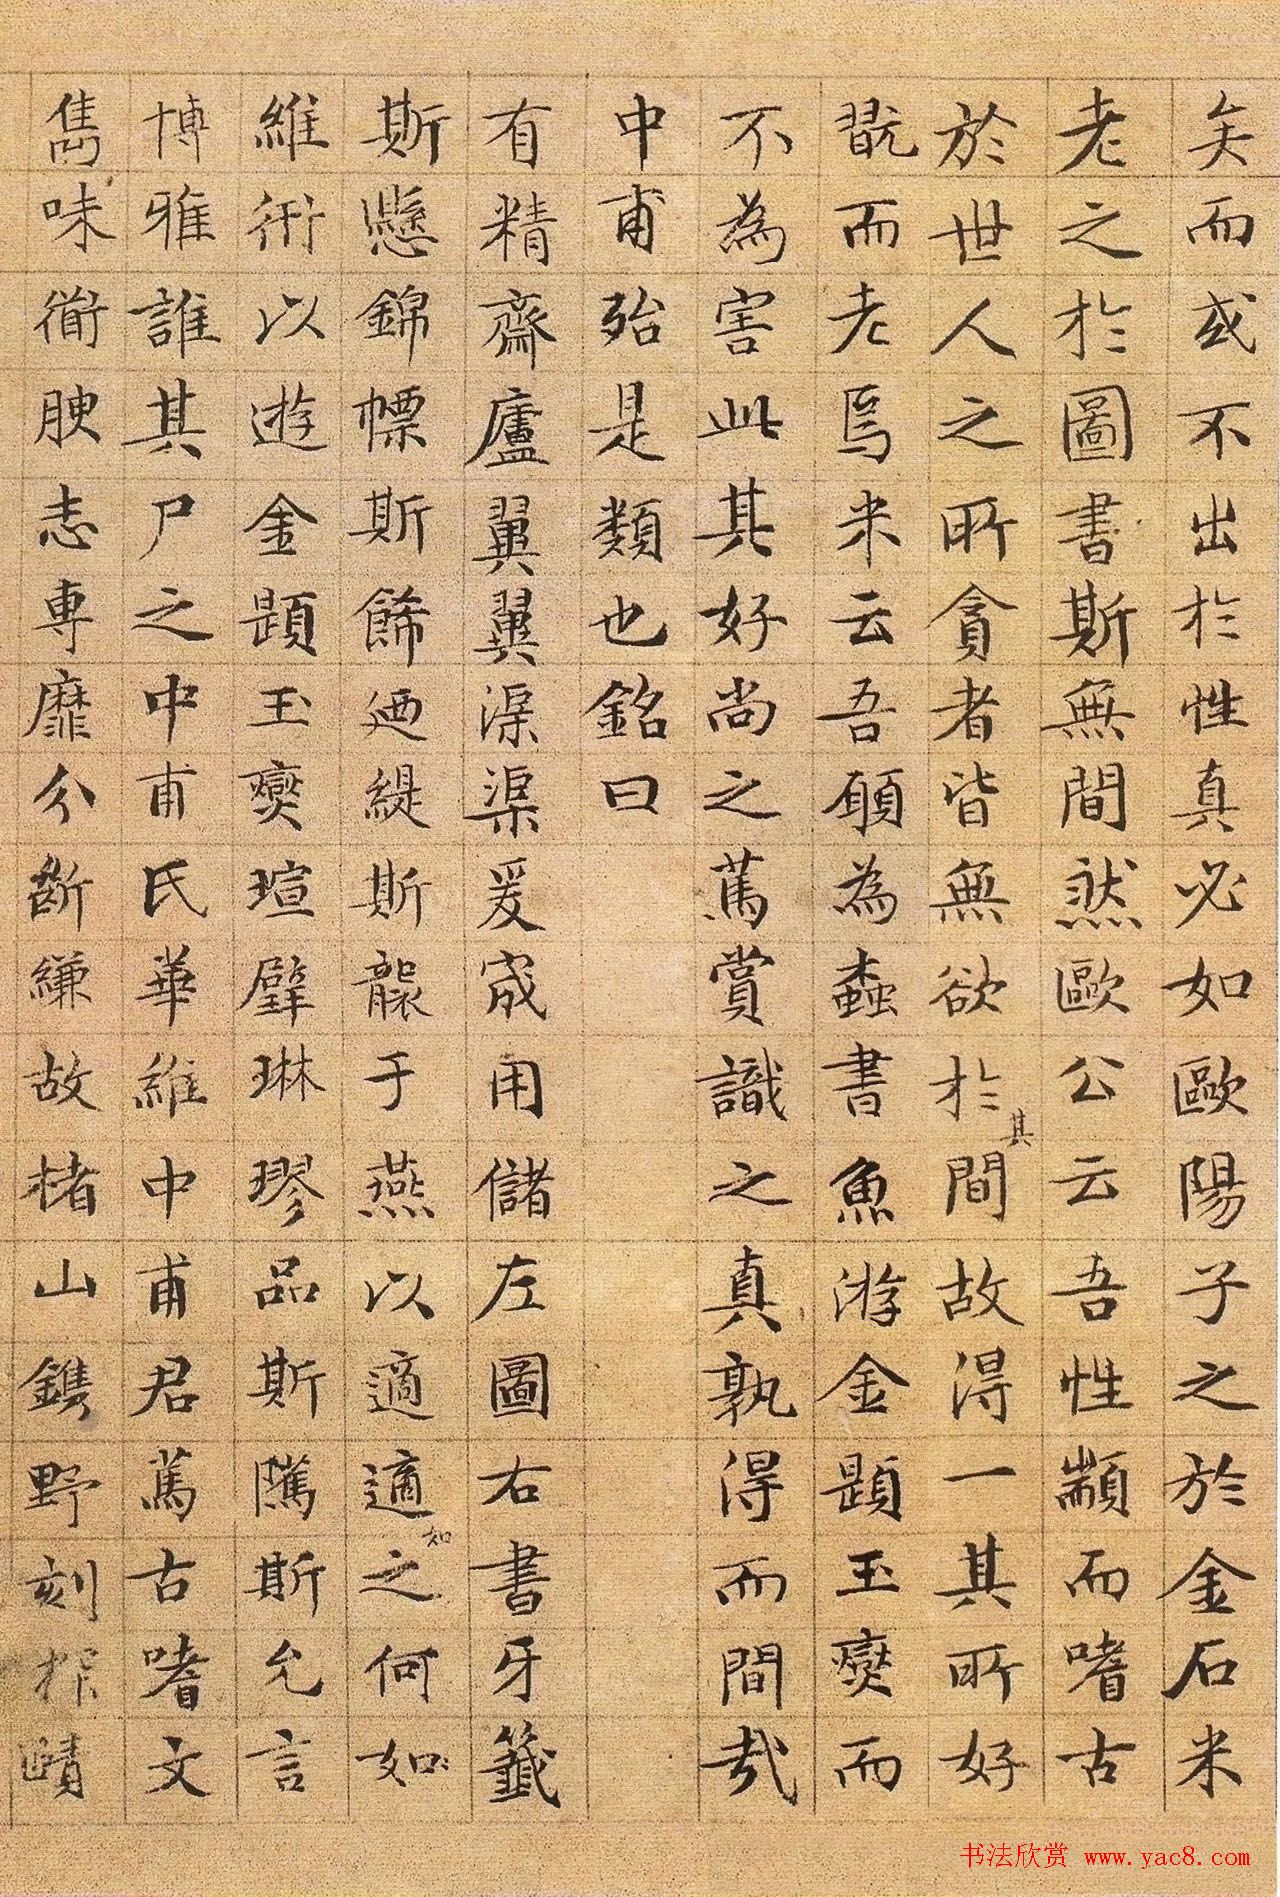 矣而或不出於性真必如歐陽子之於金石米
老之於圖書斯無間然歐公云吾性顓而嗜古
於世人之所貪者皆無欲於其間故得一其所好
翫而老焉米云吾願為蠹書魚游金題玉躞而
不為害此其好尚之篤賞識之真孰得而間哉
中甫殆是類也銘曰
有精齋廬翼翼渠渠爰宬用儲左圖右書牙籤
斯懸錦幖斯飾迺緹斯襲于燕以適適之何如
如
維衎以遊金題玉躞瑄璧琳璆品斯騭斯允言
博雅誰其尸之中甫氏華維中甫君篤古嗜文
雋味道腴志專靡分斷縑故楮山鐫野刻
書法欣賞 www.yac8.com